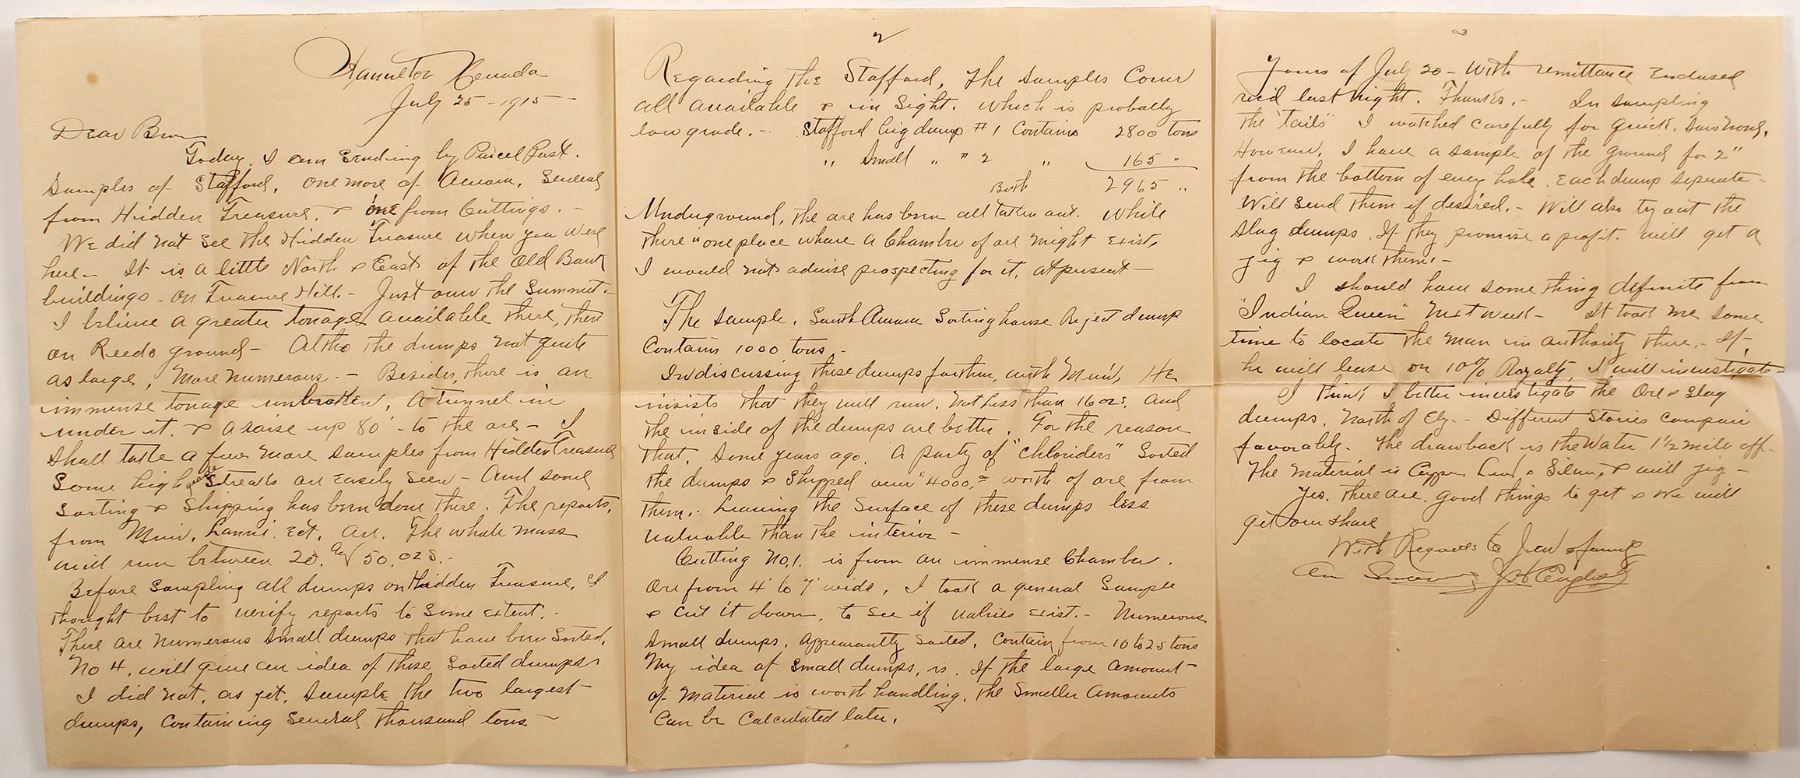 Hamilton Nevada
July 25 - 1915 -
Dear Bro
Today, I am sending by Parcel Post.
Samples of Stafford, one more of Aurum, Several
from Hidden Treasure, & one from Cuttings. -
We did not see the Hidden Treasure when you were
here. - It is a little North & East of the Old Bank
buildings - on Treasure Hill. - Just over the Summit. -
I believe a greater tonage available there, than
on Reeds ground - Altho the dumps not quite
as large, more numerous. - Besides, there is an
immense tonage unbroken, A tunnel in
under it. & a raise up 80' - to the ore - I
Shall take a few more samples from Hidden Treasure
Some high Streaks are easily seen - And some
Sorting & Shipping has been done there. The reports,
from Muir, ect, are. The whole mass
will run between 20 & 50, ozs. -
Before Sampling all dumps on Hidden Treasure, I
thought best to verify reports to some extent.
There are numerous small dumps that have been Sorted.
No 4, will give an idea of these Sorted dumps.
I did not, as yet, Sample the two largest
dumps, containing Several thousand tons -
2
Regarding the Stafford, The samples Cover
all available & in sight. Which is probally
low grade. - Stafford big dump #1 Contains 2800 tons
" Small " " 2 " 165 "
Both 2965 "
Underground, the ore has been all taken out. While
there "one place where a Chamber of ore might exist,
I would not advise prospecting for it, at present -
The Sample, South Aurum Sorting house Reject dump
Contains 1000 tons -
In discussing these dumps farther, with Muir, He
insists that they will run, not less than 16 ozs. and
the inside of the dumps are better. For the reason
that, Some years ago, A party of "Chloriders" Sorted
the dumps & Shipped over 4000.= worth of ore from
them. - Leaving the Surface of these dumps less
valuable than the interior -
Cutting No. 1. is from an immense Chamber.
Ore from 4' to 7' wide, I took a general Sample
& cut it down, to see if values exist. - Numerous
Small dumps, appearantly Sorted, Contain from 10 to 25 tons
My idea of small dumps, is. If the large amount
of material is worth handling, the smaller amounts
Can be Calculated later.
3
Yours of July 20 - With remittance Enclosed
rec'd last night. Thanks. - In sampling
the "tails" I watched carefully for quick,
However, I have a sample of the ground for 2"
from the bottom of every hole. Each dump seperate -
Will send them if desired. - Will also try out the
Slag dumps. If they promise a profit, will get a
jig & work them. -
I should have something definite from
"Indian Queen" next week - It took me some
time to locate the man in authority there. - If,
he will lease on 10% Royalty I will investigate -
I think I better investigate the Ore & Slag
dumps, North of Ely - Different Stories compair
favorably. The drawback is the Water 1½ mile off -
The material is Copper Lead & Silver, & will jig -
Yes, there are, good things to get & we will
get our share
With Regards to & family
Am J English